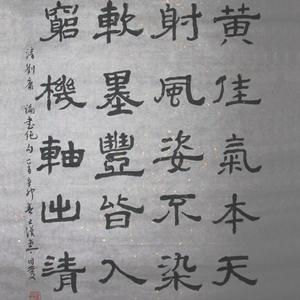 黃佳氣本天
射風姿不染
軟墨豐皆入
窮機軸出清
清劉庸 論書絕句